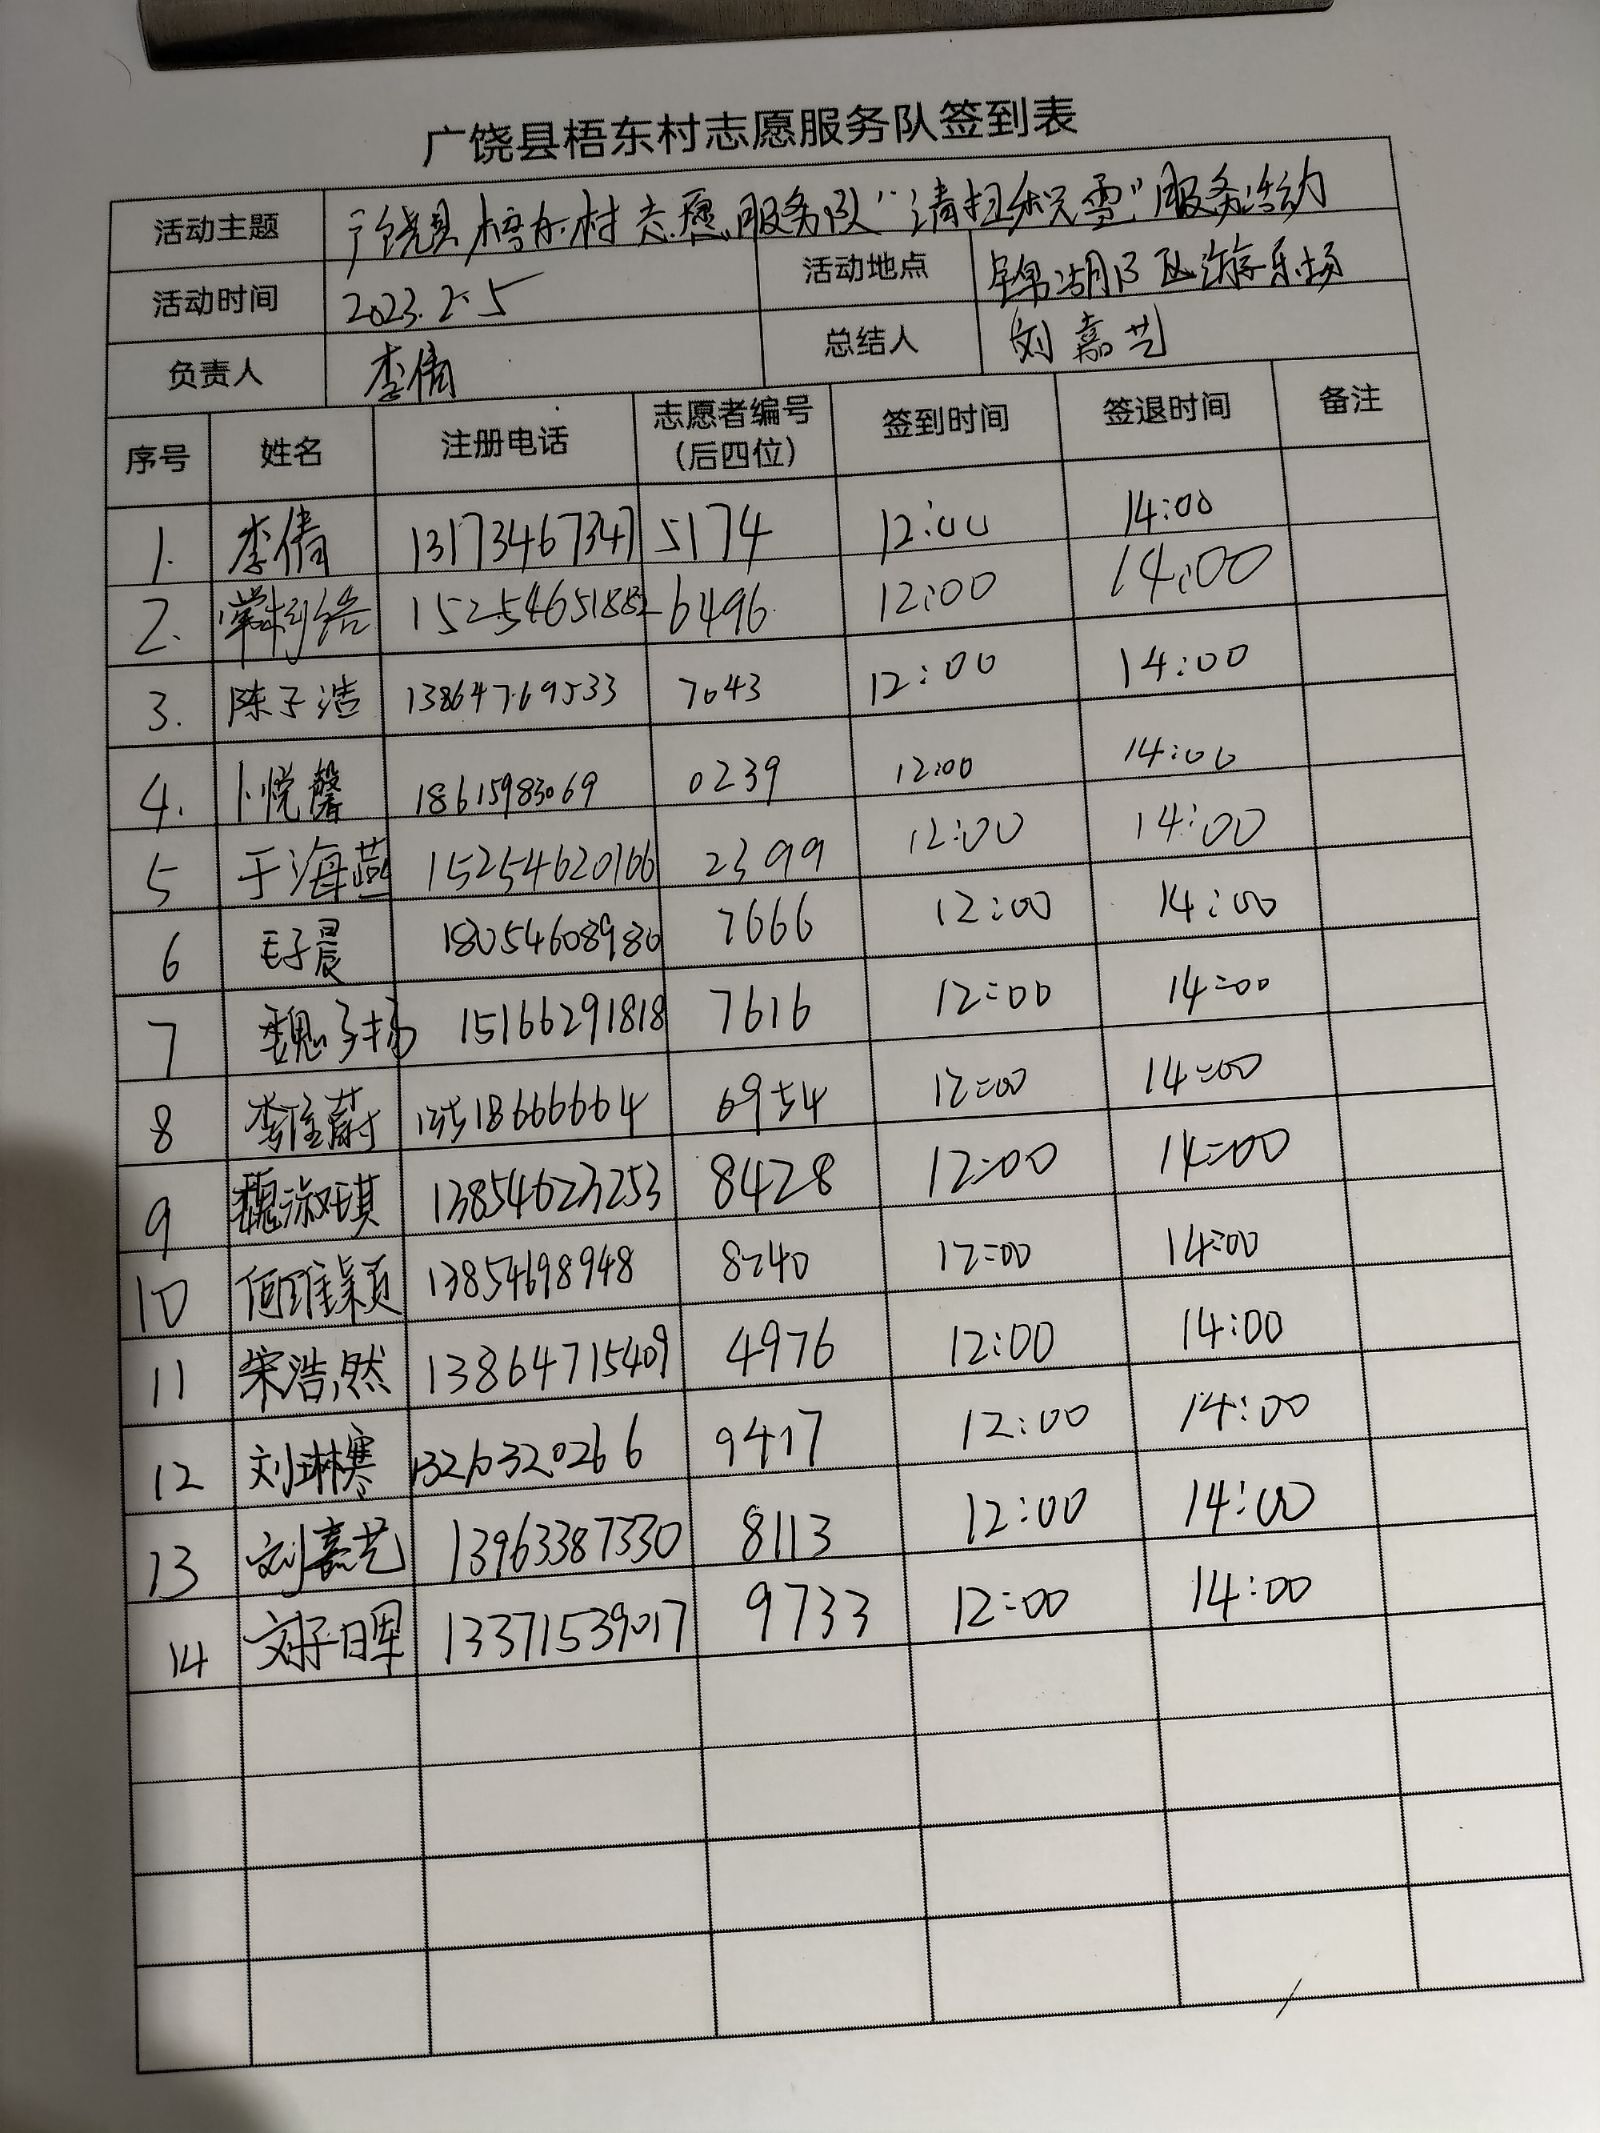 广饶县梧东村志愿服务队签到表
活动主题 广饶县梧东村志愿服务队“清扫积雪”服务活动
活动时间 2023.2.5 活动地点 锦湖B区游乐场
负责人 李倩 总结人 刘嘉艺
序号 姓名 注册电话 志愿者编号（后四位） 签到时间 签退时间 备注
1. 李倩 13173467347 5174 12:00 14:00
2. 15254651882 6496 12:00 14:00
3. 陈子浩 13864769533 7043 12:00 14:00
4. 卜悦馨 18615983069 0239 12:00 14:00
5 于海燕 15254620166 2399 12:00 14:00
6 毛子晨 18054608980 7666 12:00 14:00
7 魏子扬 15166291818 7616 12:00 14:00
8 李佳蔚 6954 12:00 14:00
9 魏淑琪 13854623253 8428 12:00 14:00
10 何雅颖 13854698948 8240 12:00 14:00
11 宋浩然 13864715409 4976 12:00 14:00
12 刘琳寒 9417 12:00 14:00
13 刘嘉艺 13963387330 8113 12:00 14:00
14 刘子晖 13371539017 9733 12:00 14:00